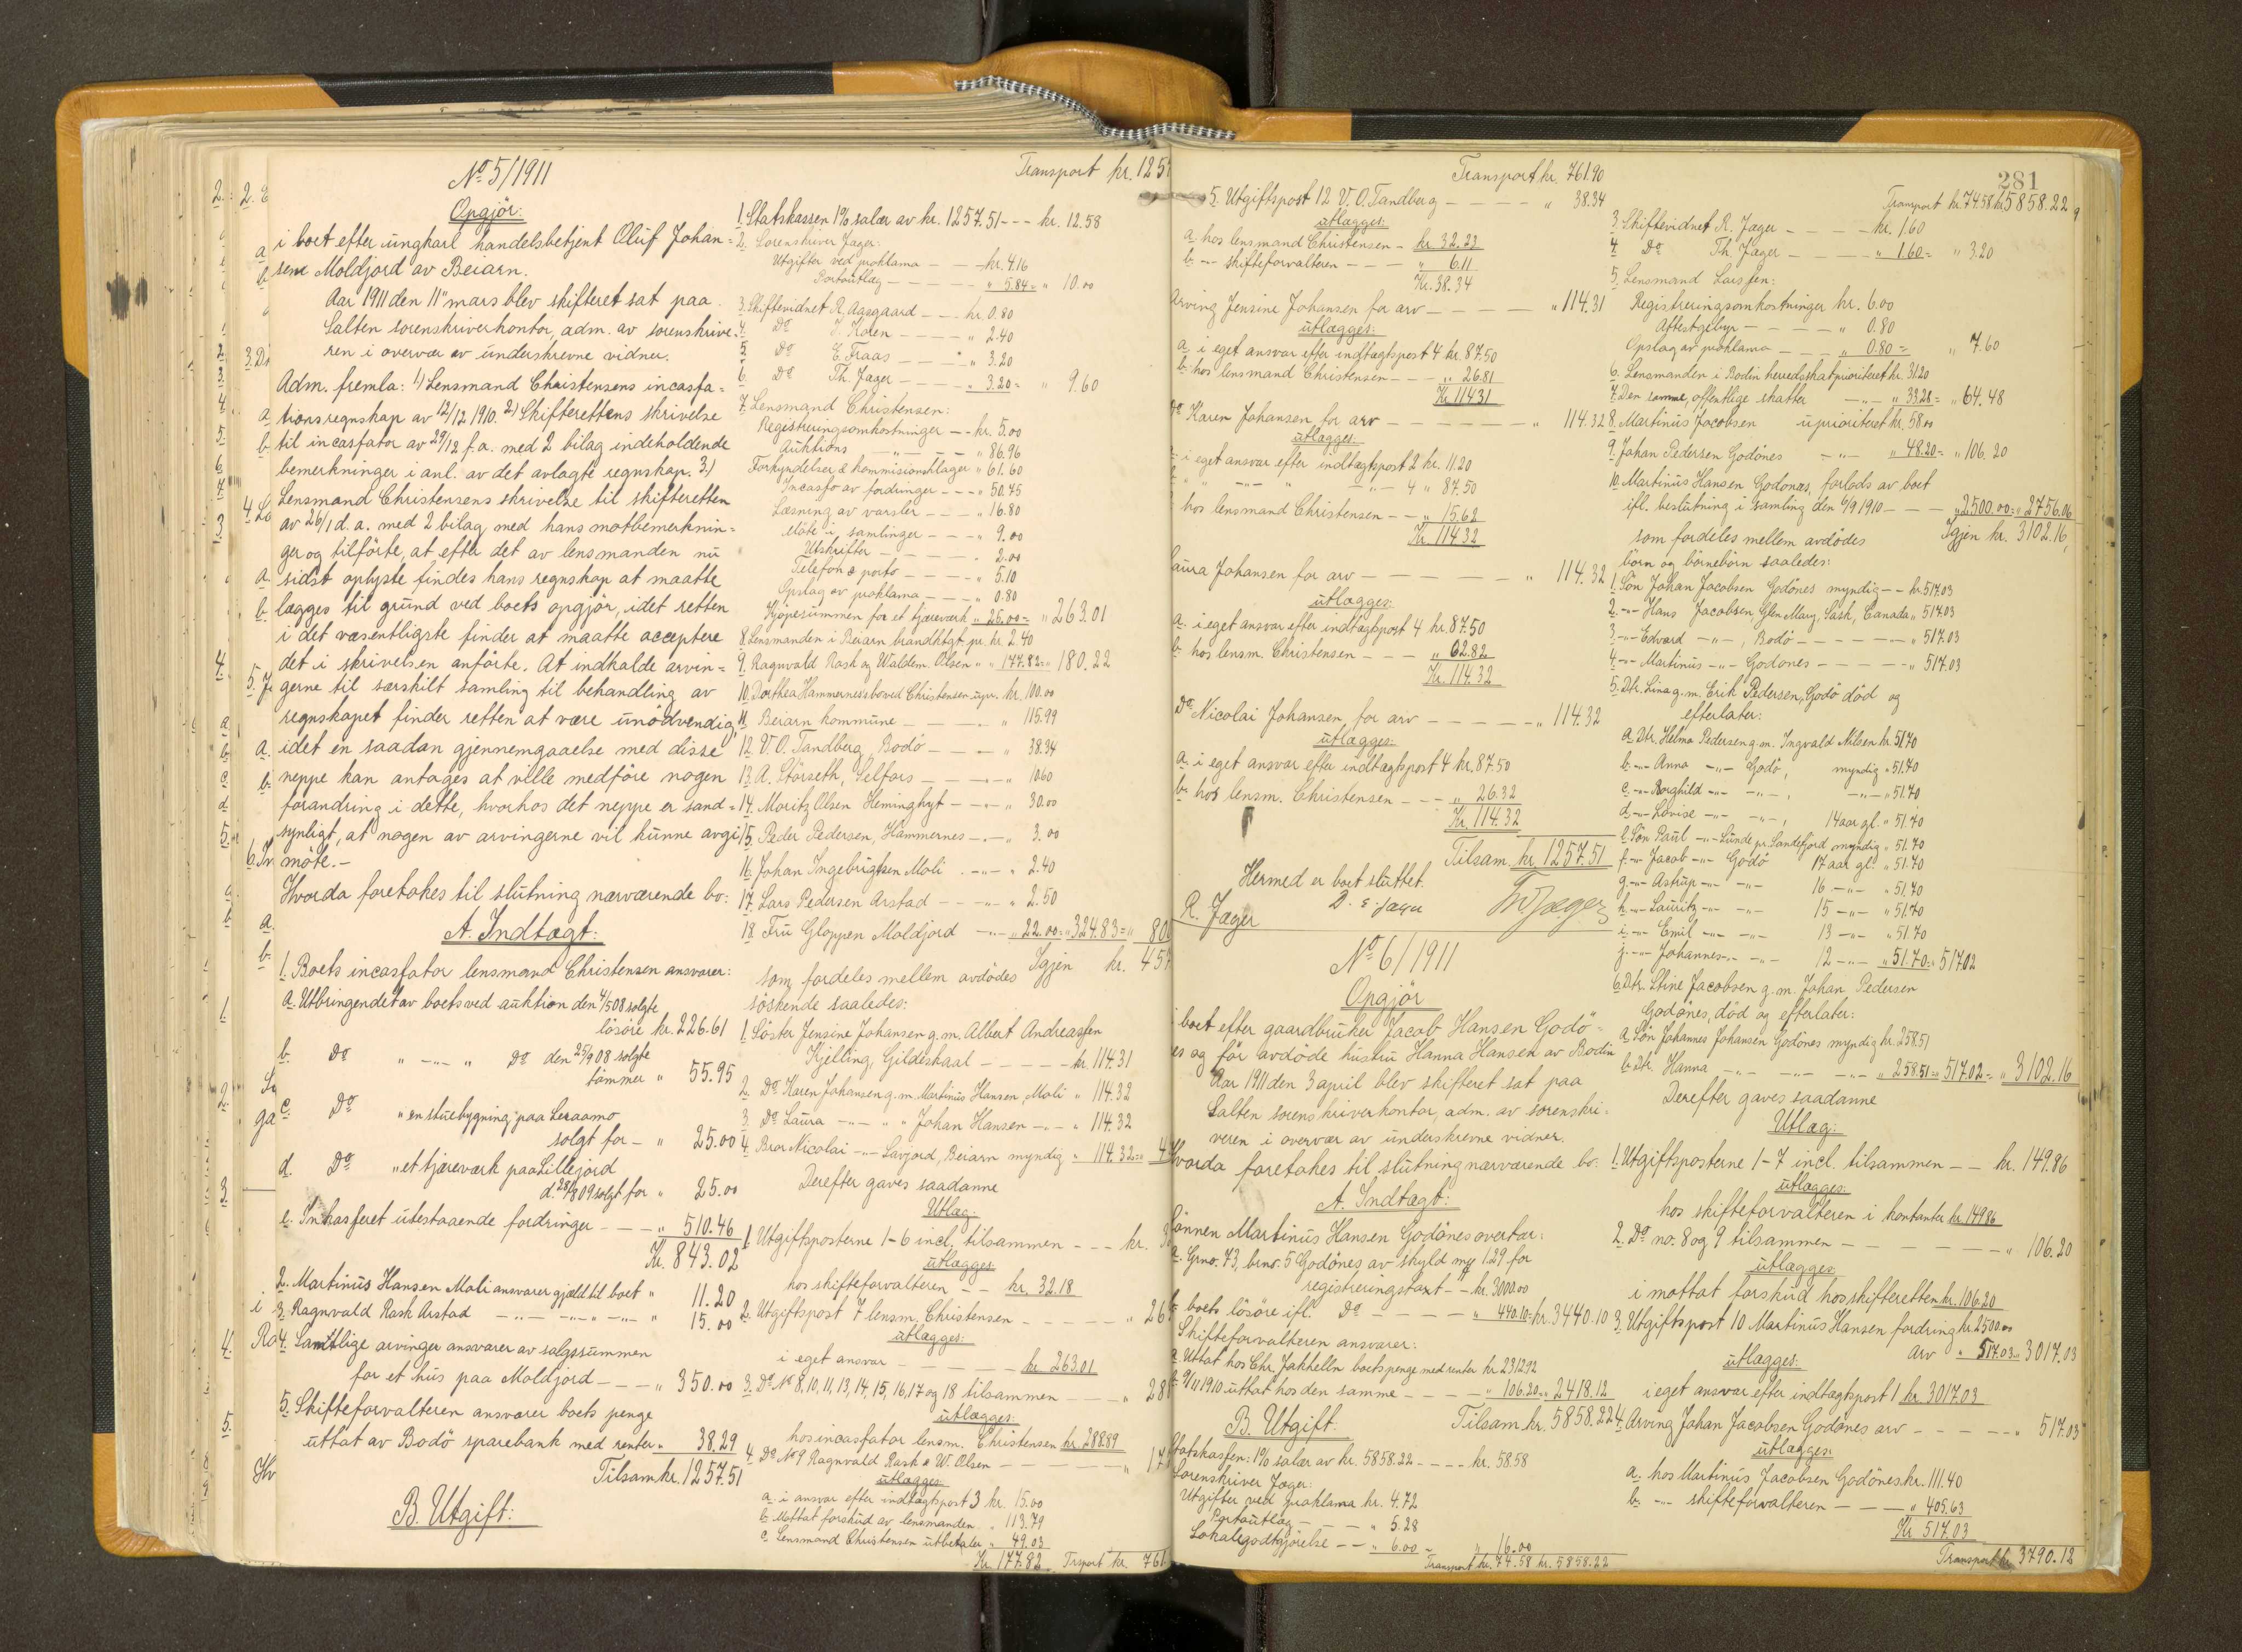 No 5/1911
Opgjör:
i boet efter ungkarl handelsbetjent Oluf Johan=
sen Moldjord av Beiarn.
Aar 1911 den 11te mars blev skifteret sat paa
Salten sorenskriverkontor, adm. av sorenskrive-
ren i overvær av underskrevne vidner.
Adm. fremla: 1) Lensmand Christensens incassa=
tionsregnskap av 12/12 1910. 2) Skifterettens skrivelse
til incassator av 29/12 f.a. med 2 bilag indeholdende
bemerkninger i anl. av det avlagte regnskap. 3.)
Lensmand Christensens skrivelse til skifteretten
av 26/1 d.a. med 2 bilag med hans motbemerknin=
ger og tilförte, at efter det av lensmanden nu
sidst oplyste findes hans regnskap at maatte
lægges til grund ved boets opgjör, idet retten
i det væsentligste finder at maatte acceptere
det i skrivelsen anförte. At indkalde arvin=
gerne til særskilt samling til behandling av
regnskapet finder retten at være unödvendig,
idet en saadan gjennemgaaelse med disse
neppe kan antages at ville medföre nogen
forandring i dette, hvorhos det neppe er sand=
synligt, at nogen av arvingerne vil kunne avgi
möte.-
Hvorda foretokes til slutning nærværende bo:
A. Indtægt:
1. Boets incassator lensmand Christensen ansvarer:
a. Utbringendet av boets ved auktion den 4/5 08 solgte
lösöre kr. 226.61
b. Do " -"- " Do den 25/9 08 solgte
tömmer " 55.95
c. Do " en stuebygning paa Leraamo
solgt for - " 25.00
d. Do " et tjæreværk paa Lillejord
d. 28/8 09 solgt for " 25.00
e. Inkasseret utestaaende fordringer - - - " 510.46
Kr. 843.02
2. Martinus Hansen Moli ansvarer gjæld til boet " 11.20
3. Ragnvald Rask Arstad -"- -"- " -"- " 15.00
4. Samtlige arvinger ansvarer av salgssummen
for et hus paa Moldjord - - - " 350.00
5. Skifteforvalteren ansvarer boets penge
uttat av Bodö sparebank med renter " 38.29
Tilsam kr. 1257.51
B. Utgift:
Transport kr. 125
1. Statskassen 1% salær av kr. 1257.51 - - - kr. 12.58
2. Sorenskriver Jæger:
Utgifter ved proklama - - - kr. 4.16
Portoutlæg - - - - - " 5.84 = " 10.00
3. Skiftevidnet R. Aasgaard - - - kr. 0.80
4. Do J. Koren - - - - " 2.40
5. Do E. Traas - - - " 3.20
6. Do Th. Jæger - - - " 3.20 = " 9.60
7. Lensmand Christensen:
Registreringsomkostninger - - kr. 5.00
Auktions -"- - - " 86.96
Forkyndelser & kommissionsdager " 61.60
Incasso av fordringer - - - " 50.45
Læsning av varsler - - - " 16.80
Möte i samlinger - - - " 9.00
Utskrifter - - - - " 2.00
Telefon & porto - - - - " 5.10
Opslag av proklama - - - " 0.80
Kjöpesummen for et tjæreværk " 25.00 = " 263.01
8. Lensmanden i Beiarn brandktgt. pr. kr. 2.40
9. Ragnvald Rask og Waldem. Olsen " " 177.82 = " 180.22
10. Dorthea Hammernes boved Christensen upr. kr. 100.00
11. Beiarn kommune - - - - " 115.99
12. V. O. Tandberg, Bodö - - - " 38.34
13. A. Störseth, Selfors - - - " 10.60
14. Moritz Olsen Heminghyt - - " 30.00
15. Peder Pedersen, Hammernes - - " 3.00
16. Johan Ingebrigtsen Moli - "- " 2.40
17. Lars Pedersen Arstad - - -"- " 2.50
18. Fru Gloppen Moldjord -"- " 22.00 = " 324.83 = " 80
Igjen kr. 457
som fordeles mellem avdödes
söskende saaledes:
1. Söster Jensine Johansen g.m. Albert Andreassen
Kjelling, Gildeskaal - - - - - kr. 114.31
2. Do Karen Johansen g.m. Martinus Hansen, Moli " 114.32
3. Do Laura -"- " " Johan Hansen -"- " 114.32
4. Bror Nicolai -"- Savjord, Beiarn myndig " 114.32 = " 4
Derefter gaves saadanne
Utlæg:
1. Utgiftsposterne 1-6 incl. tilsammen - - - kr. 3
utlægges:
hos skifteforvalteren - - kr. 32.18
2. Utgiftspost 7 lensm. Christensen - - - - - " 26
utlægges:
i eget ansvar - - - - - kr. 263.01
3. Do No 8, 10, 11, 13, 14, 15, 16, 17 og 18 tilsammen - - " 28
utlægges:
hos incassator lensm. Christensen kr. 288.89
4. Do No 9 Ragnvald Rask & W. Olsen - - - - - " 17
utlægges:
a. i ansvar efter indtægtspost 3 kr. 15.00
b. Mottat forskud av lensmanden " 113.79
c. Lensmand Christensen utbetaler " 49.03
Kr. 177.82 Trsport kr. 761
Transport kr. 761.90
5. Utgiftspost 12 V. O. Tandberg - - - - - " 38.34
utlægges:
a. hos lensmand Christensen - kr. 32.23
b. -"- skifteforvalteren - - - " 6.11
Kr. 38.34
Arving Jensine Johansen for arv - - - - - " 114.31
utlægges:
a. i eget ansvar efter indtægtspost 4 kr. 87.50
b. hos lensmand Christensen - - - " 26.81
Kr. 114.31
Do Karen Johansen for arv - - - - - - " 114.32
utlægges:
i eget ansvar efter indtægtspost 2 kr. 11.20
" " -"- " -"- 4 " 87.50
hos lensmand Christensen - - " 15.62
Kr. 114.32
Laura Johansen for arv - - - - - " 114.32
utlægges:
a. i eget ansvar efter indtægtspost 4 kr. 87.50
b. hos lensm. Christensen - - - " 62.82
Kr. 114.32
Do Nicolai Johansen for arv - - - - - " 114.32
utlægges:
a. i eget ansvar efter indtægtspost 4 kr. 87.50
b. hos lensm. Christensen - - - " 26.32
Kr. 114.32
Tilsam. kr. 1257.51
Hermed er boet sluttet.
R. Jæger
No 6/1911
Opgjör
i boet efter gaardbruker Jacob Hansen Godö=
es og för avdöde hustru Hanna Hansen av Bodin
Aar 1911 den 3 april blev skifteret sat paa
Salten sorenskriverkontor, adm. av sorenskri=
veren i overvær av underskrevne vidner.
Hvorda foretokes til slutning nærværende bo:
A. Indtægt:
Sönnen Martinus Hansen Godönes overtar:
a. Grno. 73, brno. 5 Godönes av skyld mk 1.29 for
registreringstaxt - - kr. 3000.00
b. boets lösöre ifl. Do - - - - " 440.10 = kr. 3440.10
Skifteforvalteren ansvarer:
a. Uttat hos Chr. Jakhelln boets penge med renter kr. 2312.92
b. 9/11 1910 uttat hos den samme - - - - " 106.20 = " 2418.12
Tilsam kr. 5858.22
B. Utgift:
Statskassen: 1% salær av kr. 5858.22 - - - - kr. 58.58
Sorenskriver Jæger:
Utgifter ved proklama kr. 4.72
Portoutlæg - - - - " 5.28
Lokalegodtgjörelse - - " 6.00 = " 16.00
Transport kr. 74.58 kr. 5858.22
281
Transport kr. 74.58 kr. 5858.22
3. Skiftevidnet R. Jæger - - - - kr. 1.60
4. Do Th. Jæger - - - - - " 1.60 = " 3.20
5. Lensmand Larssen:
Registreringsomkostninger kr. 6.00
Attestgebyr - - - - - " 0.80
Opslag av proklama - - - " 0.80 = " 7.60
6. Lensmanden i Bodin herredsskat prioriteret kr. 31.20
7. Den samme, offentlige skatter -"- " 33.28 = " 64.48
8. Martinus Jacobsen uprioriteret kr. 58.00
9. Johan Pedersen Godönes -"- " 48.20 = " 106.20
10. Martinus Hansen Godönes, forlods av boet
ifl. beslutning i samling den 6/9 1910 - - - " 2500.00 = " 2756.06
Igjen kr. 3102.16
som fordeles mellem avdödes
börn og börnebörn saaledes:
1. Sön Johan Jacobsen Godönes myndig - - kr. 517.03
2. -"- Hans Jacobsen, Glen Mary, Sask, Canada " 517.03
3. -"- Edvard -"- , Bodö - - - - -"- " 517.03
4. -"- Martinus -"- Godönes - - - - -"- " 517.03
5. Dtr. Lina g.m. Erik Pedersen, Godö död og
efterlater:
a. Dtr. Helma Pedersen g.m. Ingvald Nilsen kr. 51.70
b. -"- Anna -"- Godö, myndig " 51.70
c. -"- Borghild -"- -"- , -"- " 51.70
d. -"- Lovise -"- -"- , 14 aar gl. " 51.70
e. Sön Paul -"- Lunde pr. Sandefjord myndig " 51.70
f. -"- Jacob -"- Godö 17 aar gl. " 51.70
g. -"- Astrup -"- -"- 16 -"- " 51.70
h. -"- Lauritz -"- -"- 15 -"- " 51.70
i. -"- Emil -"- -"- 13 -"- " 51.70
j. -"- Johannes -"- -"- 12 -"- " 51.70 = " 517.02
6. Dtr. Stine Jacobsen g.m. Johan Pedersen
Godönes, död og efterlater:
a. Sön Johannes Johansen Godönes myndig kr. 258.51
b. Dtr. Hanna -"- -"- -"- " 258.51 = " 517.02 = " 3102.16
Derefter gaves saadanne
Utlæg:
1. Utgiftsposterne 1-7 incl. tilsammen - - kr. 149.86
utlægges:
hos skifteforvalteren i kontanter kr. 149.86
2. Do no. 8 og 9 tilsammen - - - - - - " 106.20
utlægges:
i mottat forskud hos skifteretten kr. 106.20
3. Utgiftspost 10 Martinus Hansen fordring kr. 2500.00
Arv " 517.03 = " 3017.03
utlægges:
i eget ansvar efter indtægtspost 1 kr. 3017.03
4. Arving Johan Jacobsen Godönes arv - - - - - " 517.03
utlægges:
a. hos Martinus Jacobsen Godönes kr. 111.40
b. -"- skifteforvalteren - - - " 405.63
Kr. 517.03
Transport kr. 3790.12